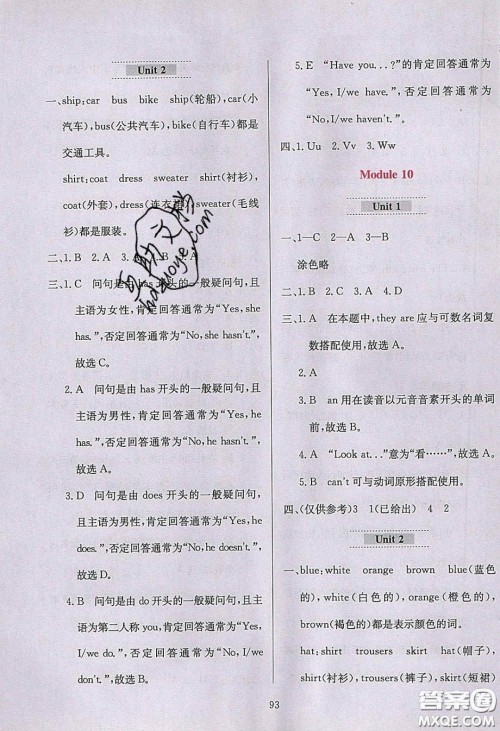 Unit 2
一、ship:car　bus　bike　ship(轮船),car(小
汽车),bus(公共汽车),bike(自行车)都是
交通工具。
shirt:coat　dress　sweater　shirt(衬衫),
coat(外套),dress(连衣裙),sweater(毛线
衫)都是服装。
二、1.B　2.A
三、1.C　问句是由 has 开头的一般疑问句,且
主语为女性,肯定回答通常为“Yes,she
has.”,否定回答通常为“No,she hasn't.”,
故选 C。
2.A　问句是由 has 开头的一般疑问句,且
主语为男性,肯定回答通常为“Yes,he
has.”,否定回答通常为“No,he hasn't.”,
故选 A。
3.D　问句是由 does 开头的一般疑问句,
且主语为男性,肯定回答通常为“Yes,he
does.”,否定回答通常为“No,he doesn't.”,
故选 D。
4.B　问句是由 do 开头的一般疑问句,且
主语为第二人称 you,肯定回答通常为“Yes,
I/we do.”,否定回答通常为“No,I/we
don't.”,故选 B。
5.E　“Have you...?”的肯定回答通常为
“Yes,I/we have.”,否定回答通常为
“No,I/we haven't.”。
四、1.Uu　2.Vv　3.Ww
Module 10
Unit 1
一、1—C　2—A　3—B
涂色略
二、1.B　2.B　3.A　4.D
三、1.A　在本题中,they are 应与可数名词复
数搭配使用,故选 A。
2.A
3.B　an 用在读音以元音音素开头的单词
前,故选 B。
4.A　“Look at...”意为“看……”,故选 A。
5.B　can't 可与动词原形搭配使用。
四、(仅供参考)3　1(已给出)　4　2
Unit 2
一、blue:white　orange　brown　blue(蓝色
的),white(白色的),orange(橙色的),
brown(褐色的)都是表示颜色的词。
hat:shirt　trousers　skirt　hat(帽子),
shirt(衬衫),trousers(裤子),skirt(短裙)
93
互助文学
huzuoye.com
答案圈
MXQE.COM